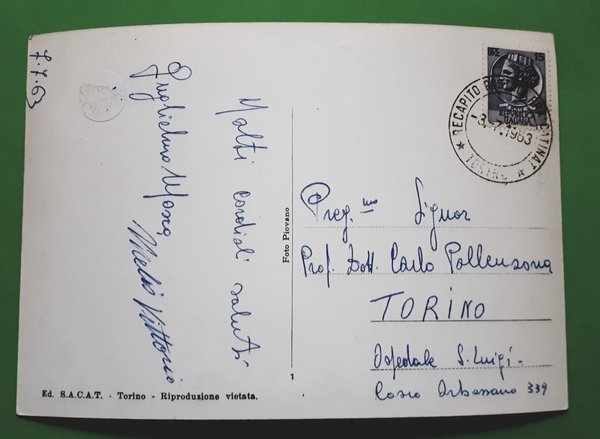 7.7.63
Molti cordiali saluti
Guglielmo
Vittorio
Foto Piovano
1
Ed. S.A.C.A.T. - Torino - Riproduzione vietata.
15
RECAPITO
-3.7.1963
TORINO
Preg.mo Signor
Prof. Dott. Carlo
TORINO
Ospedale S. Luigi -
Corso Orbassano 339